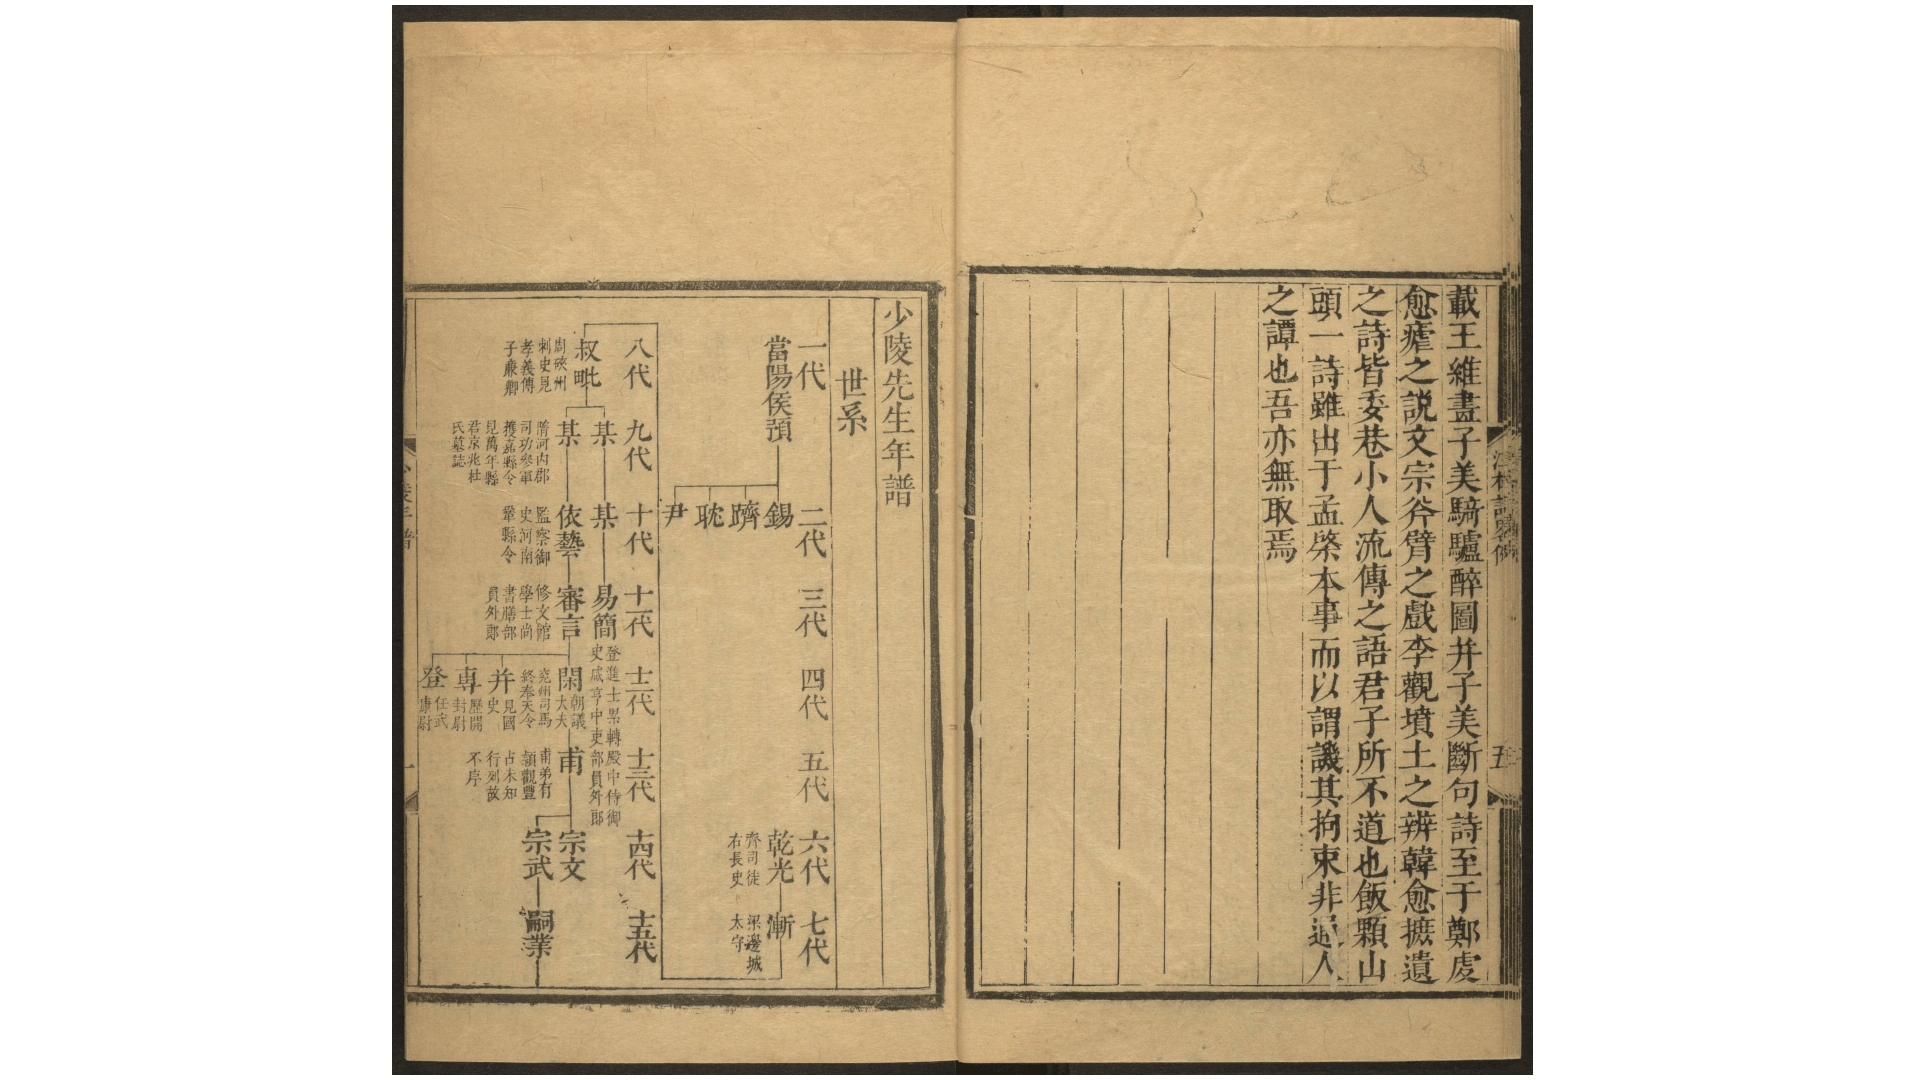 載王維畫子美騎驢醉圖并子美斷句詩至于鄭虔
愈瘧之説文宗斧臂之戲李觀墳土之辨韓愈摭遺
之詩皆委巷小人流傳之語君子所不道也飯顆山
頭一詩雖出于孟棨本事而以謂譏其拘束非通人
之譚也吾亦無取焉
五
少陵先生年譜
世系
一代
二代
三代
四代
五代
六代
七代
當陽侯預
錫
躋
耽
尹
乾光
齊司徒
右長史
漸
梁邊城
太守
八代
九代
十代
十一代
十二代
十三代
十四代
十五代
叔毗
周硤州
刺史見
孝義傳
子廉卿
某
某
易簡
登進士累轉殿中侍御
史咸亨中吏部員外郎
某
隋河內郡
司功參軍
獲嘉縣令
見萬年縣
君京兆杜
氏墓誌
依藝
監察御
史河南
鞏縣令
審言
修文館
學士尚
書膳部
員外郎
閑
朝議
大夫
兗州司馬
終奉天令
并
見國
史
專
歷開
封尉
登
任武
康尉
甫
甫弟有
穎觀豐
占未知
行列故
不序
宗文
宗武
嗣業